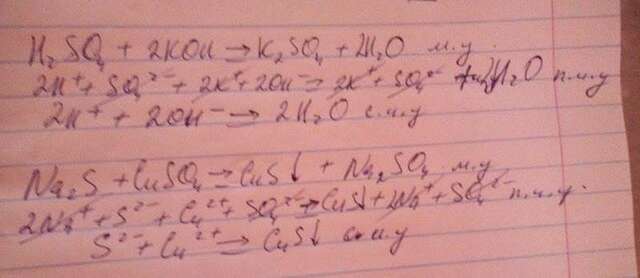 H₂SO₄ + 2KOH → K₂SO₄ + 2H₂O м.у.
2H⁺ + SO₄²⁻ + 2K⁺ + 2OH⁻ = 2K⁺ + SO₄²⁻ + 2H₂O п.и.у
2H⁺ + 2OH⁻ → 2H₂O с.и.у
Na₂S + CuSO₄ → CuS↓ + Na₂SO₄ м.у
2Na⁺ + S²⁻ + Cu²⁺ + SO₄²⁻ → CuS↓ + 2Na⁺ + SO₄²⁻ п.и.у.
S²⁻ + Cu²⁺ → CuS↓ с.и.у